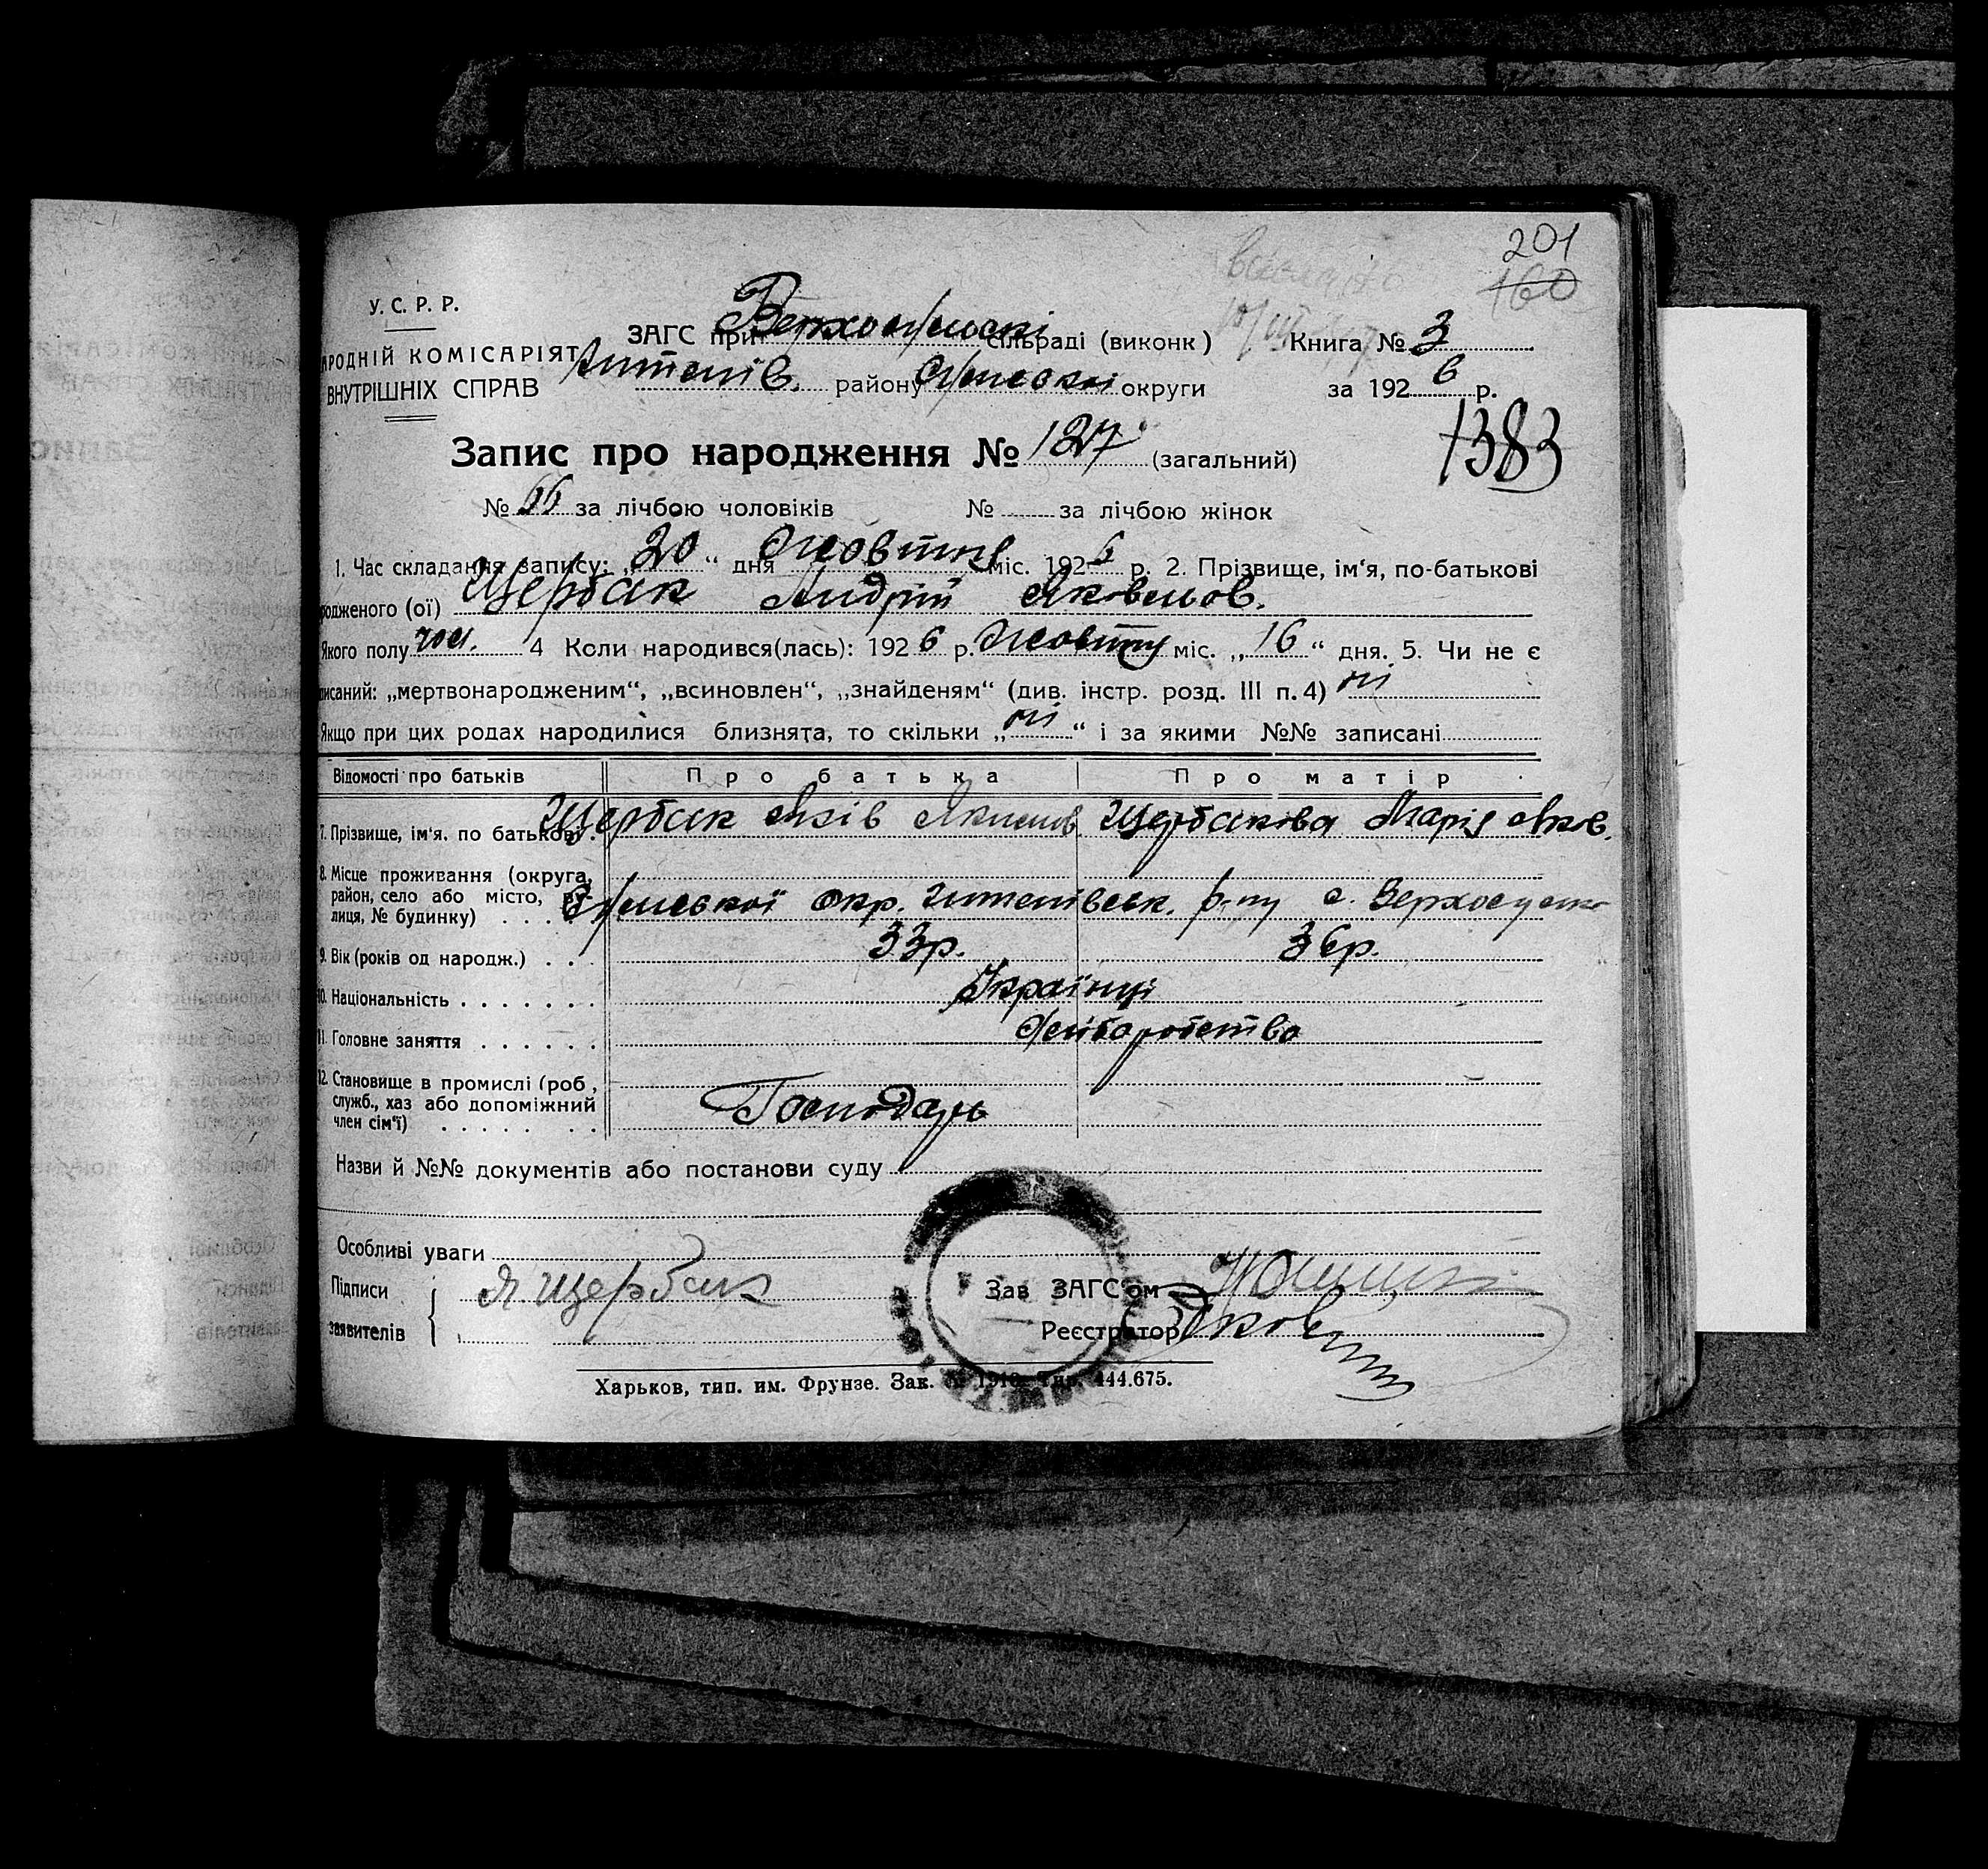 201
160
У. С. Р. Р.
ЗАГС при Верхосумські сільраді (виконк) Книга № 3
АРОДНІЙ КОМІСАРІЯТ
ВНУТРІШНІХ СПРАВ
району Сумської округи за 1926 р.
1383
Запис про народження № 127 (загальний)
№ 66 за лічбою чоловіків № за лічбою жінок
1. Час складання запису: „20“ дня Жовтня міс. 1926 р. 2. Прізвище, ім‘я, по-батькові
родженого (ої) Щербак Андрій Яковлов.
Якого полу чол. 4 Коли народився(лась): 1926 р. Жовтня міс. „16“ дня. 5. Чи не є
писаний: „мертвонародженим“, „всиновлен“, „знайденям“ (див. інстр. розд. III п. 4) ні
Якщо при цих родах народилися близнята, то скільки „ні“ і за якими №№ записані
Відомості про батьків Про батька Про матір
7. Прізвище, ім‘я. по батькові. Щербак Яків Якимов. Щербакова Марія Яков.
8. Місце проживання (округа,
район, село або місто, ву-
лиця, № будинку) . . . Сумської окр. р-ну с. Верхосумка
9. Вік (років од народж.) . . . 33р. 36р.
10. Національність . . . . . . . Українці
11. Головне заняття . . . . . . Хліборобство
12. Становище в промислі (роб,
служб., хаз або допоміжний
член сім‘ї) . . . . . . . . Господарь
Назви й №№ документів або постанови суду
Особливі уваги
Підписи
заявителів
Я Щербак
Зав ЗАГС‘ом
Реєстратор
Харьков, тип. им. Фрунзе. Зак. 444.675.